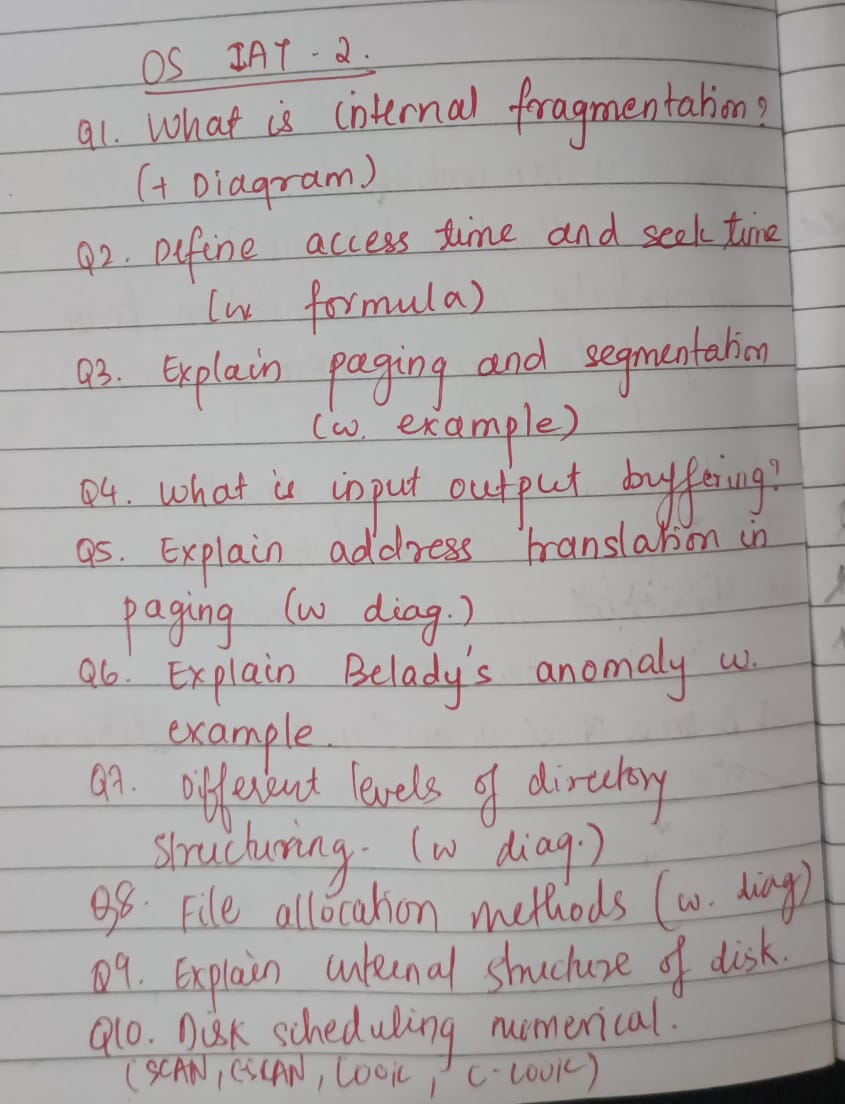 OS IAT - 2.
Q1. What is internal fragmentation?
(+ Diagram)
Q2. Define access time and seek time
(w. formula)
Q3. Explain paging and segmentation
(w. example)
Q4. What is input output buffering?
Q5. Explain address translation in
paging (w diag.)
Q6. Explain Belady's anomaly w.
example.
Q7. Different levels of directory
structuring. (w diag.)
Q8. File allocation methods (w. diag)
Q9. Explain internal structure of disk.
Q10. Disk scheduling numerical.
(SCAN, CSCAN, LOOK, C-LOOK)